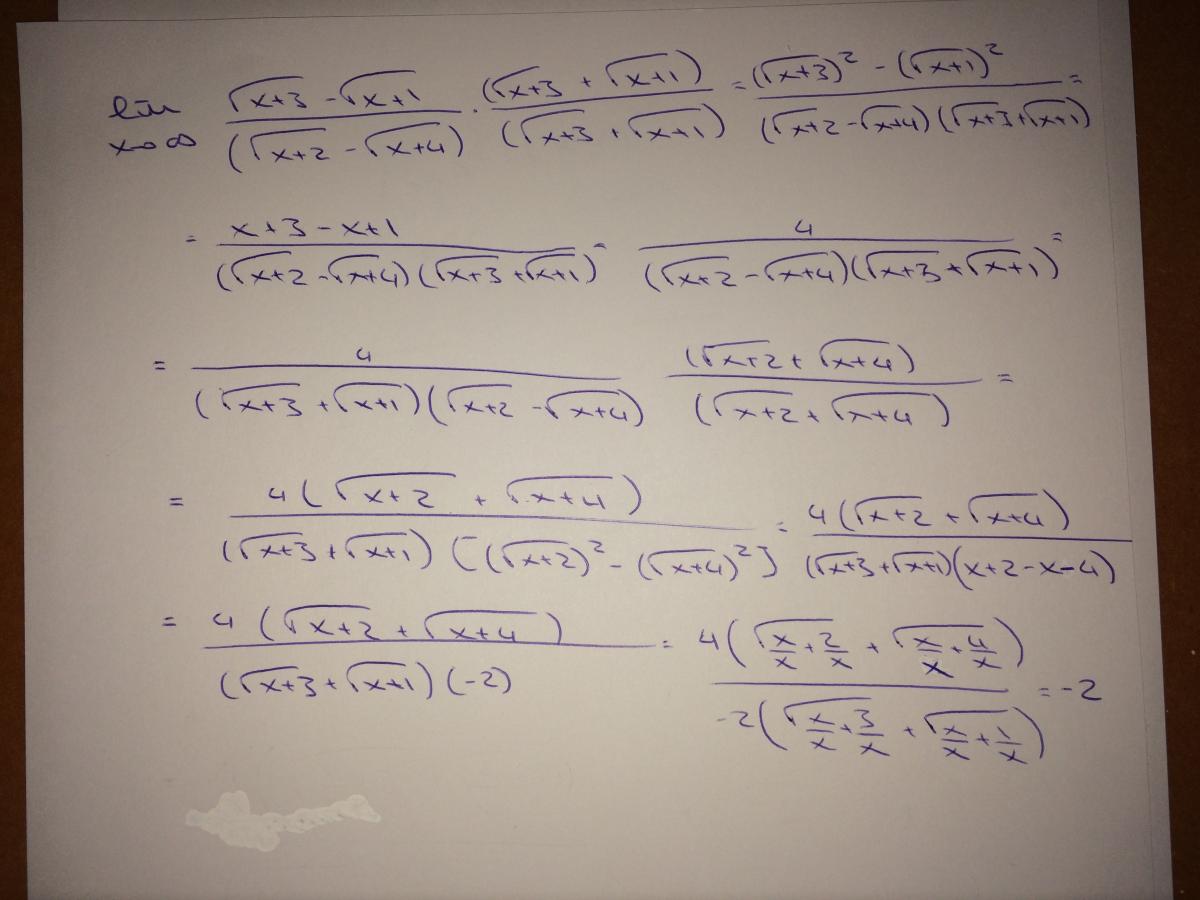 lim x→∞ (√x+3 - √x+1)/((√x+2 - √x+4)) · ((√x+3 + √x+1))/((√x+3 + √x+1)) = ((√x+3)² - (√x+1)²)/((√x+2 - √x+4)(√x+3 + √x+1)) =
= (x+3-x+1)/((√x+2 - √x+4)(√x+3 + √x+1)) = 4/((√x+2 - √x+4)(√x+3 + √x+1)) =
= 4/((√x+3 + √x+1)(√x+2 - √x+4)) ((√x+2 + √x+4))/((√x+2 + √x+4)) =
= 4(√x+2 + √x+4)/((√x+3 + √x+1)[(√x+2)² - (√x+4)²]) = 4(√x+2 + √x+4)/((√x+3 + √x+1)(x+2-x-4))
= 4(√x+2 + √x+4)/((√x+3 + √x+1)(-2)) = 4(√x/x + 2/x + √x/x + 4/x)/(-2(√x/x + 3/x + √x/x + 1/x)) = -2